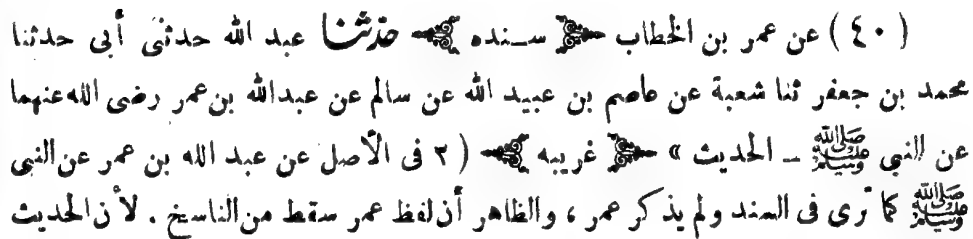 (٤٠) عن عمر بن الخطاب ﴿ سنده ﴾ حدثنا عبد الله حدثنى أبى حدثنا
محمد بن جعفر ثنا شعبة عن عاصم بن عبيد الله عن سالم عن عبدالله بن عمر رضى الله عنهما
عن النبى ﷺ ـ الحديث » ﴿ غريبه ﴾ (٢ فى الأصل عن عبد الله بن عمر عن النبى
ﷺ كما ترى فى السند ولم يذكر عمر ، والظاهر أن لفظ عمر سقط من الناسخ . لأن الحديث